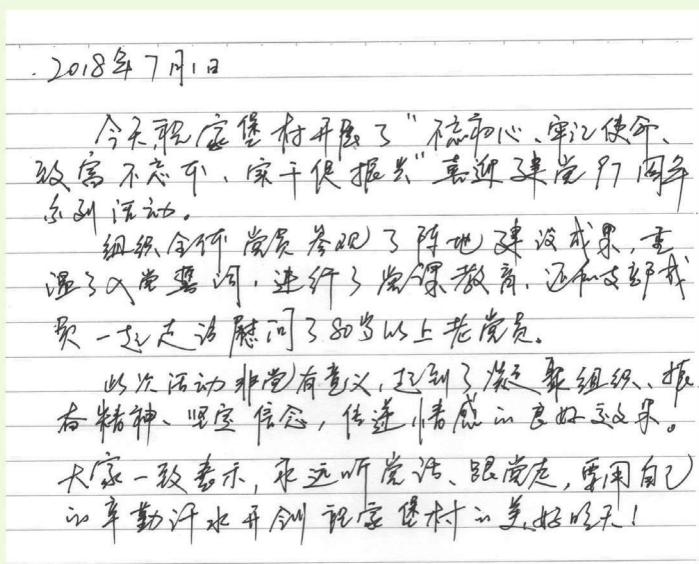 2018年7月1日
今天,祝家堡村开展了“不忘初心、牢记使命、
致富不忘本、实干促振兴”喜迎建党97周年
系列活动。
组织全体党员参观了阵地建设成果,重
温了入党誓词,进行了党课教育,还和支部成
员一起走访慰问了80岁以上老党员。
此次活动非常有意义,起到了凝聚组织、振
奋精神、坚定信念,传递情感的良好效果。
大家一致表示,永远听党话、跟党走,要用自己
的辛勤汗水开创祝家堡村的美好明天!